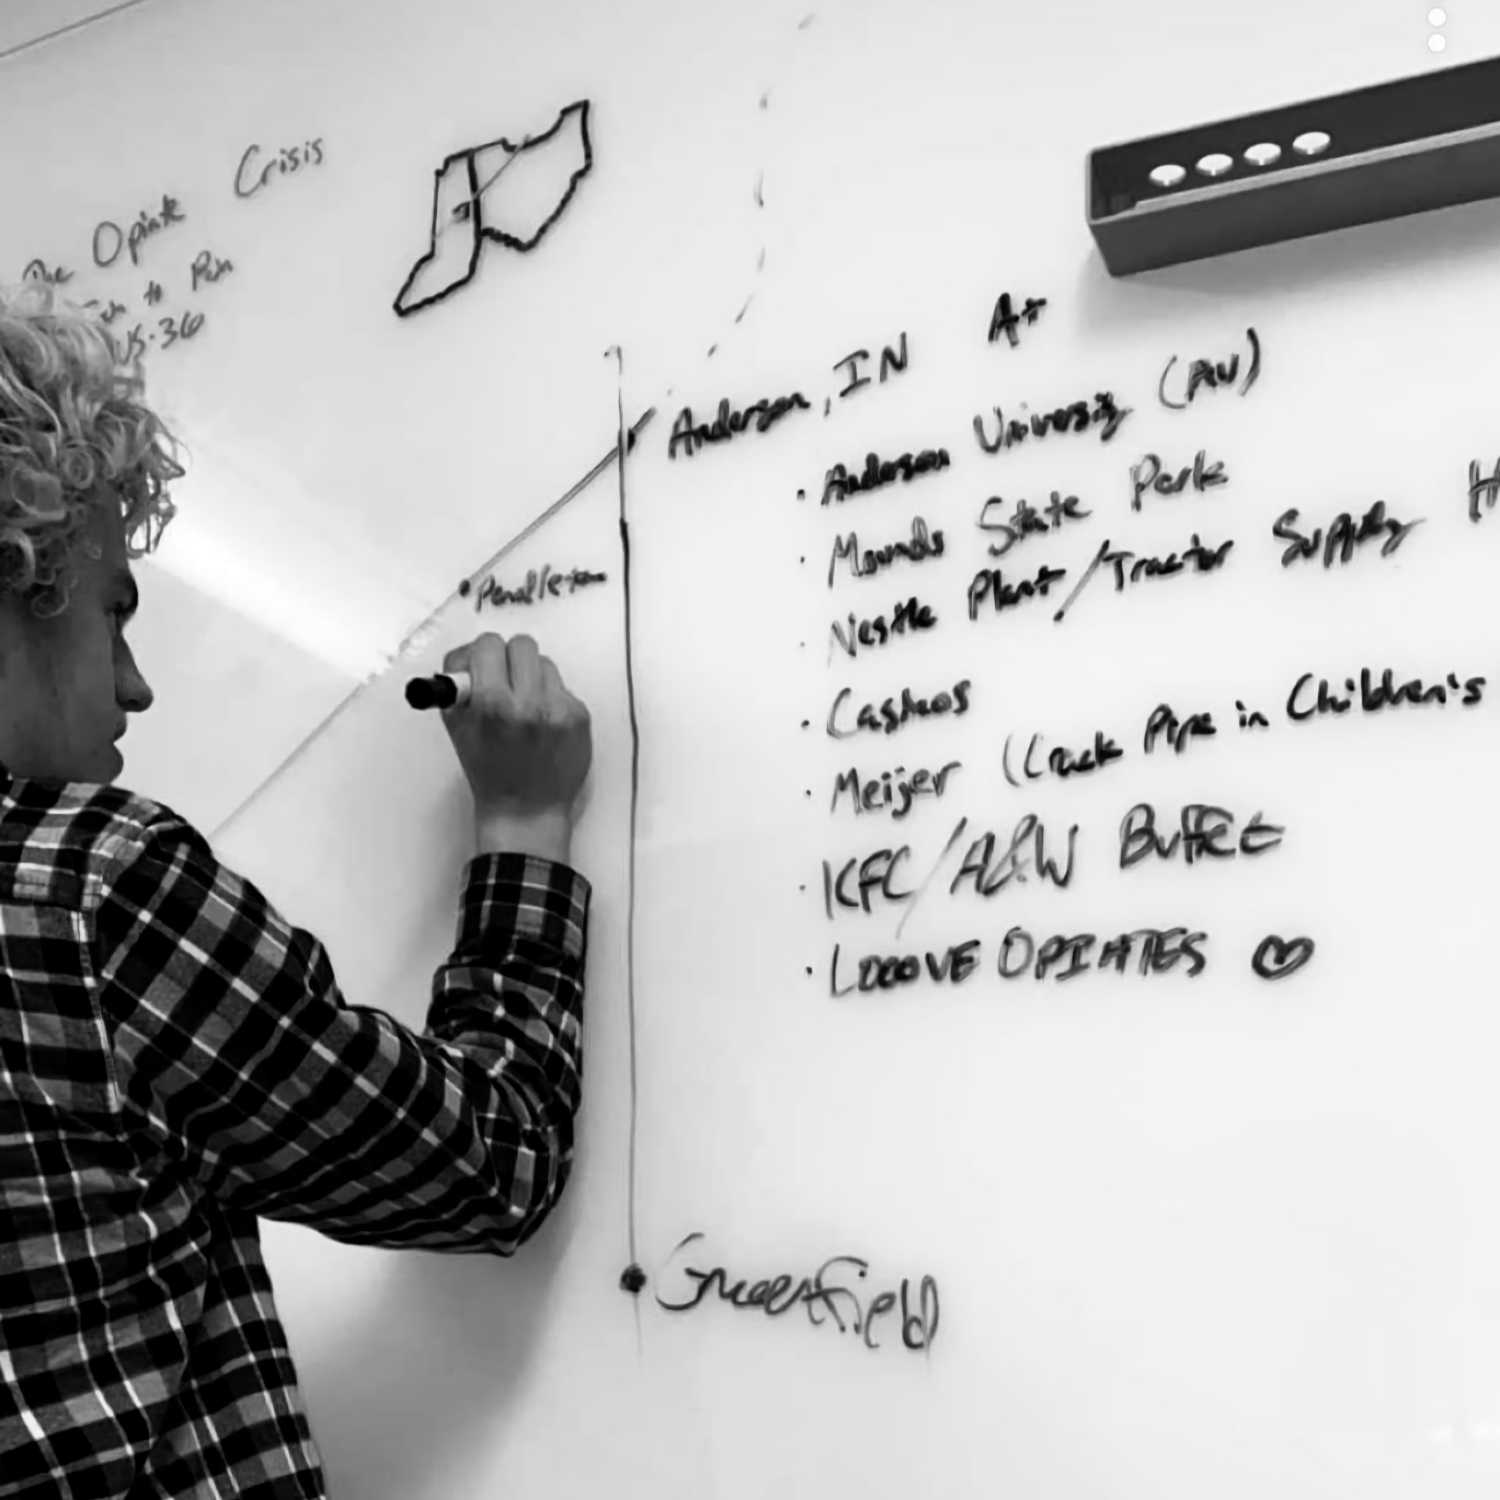 The Opiate Crisis
to Pain
US-36
Anderson, IN A+
· Anderson University (AU)
· Mounds State Park
· Nestle Plant/Tractor Supply H
· Casinos
· Meijer (Crack Pipe in Children's
· KFC/A&W Buffet
· LOOOVE OPIATES ♡
Pendleton
Greenfield